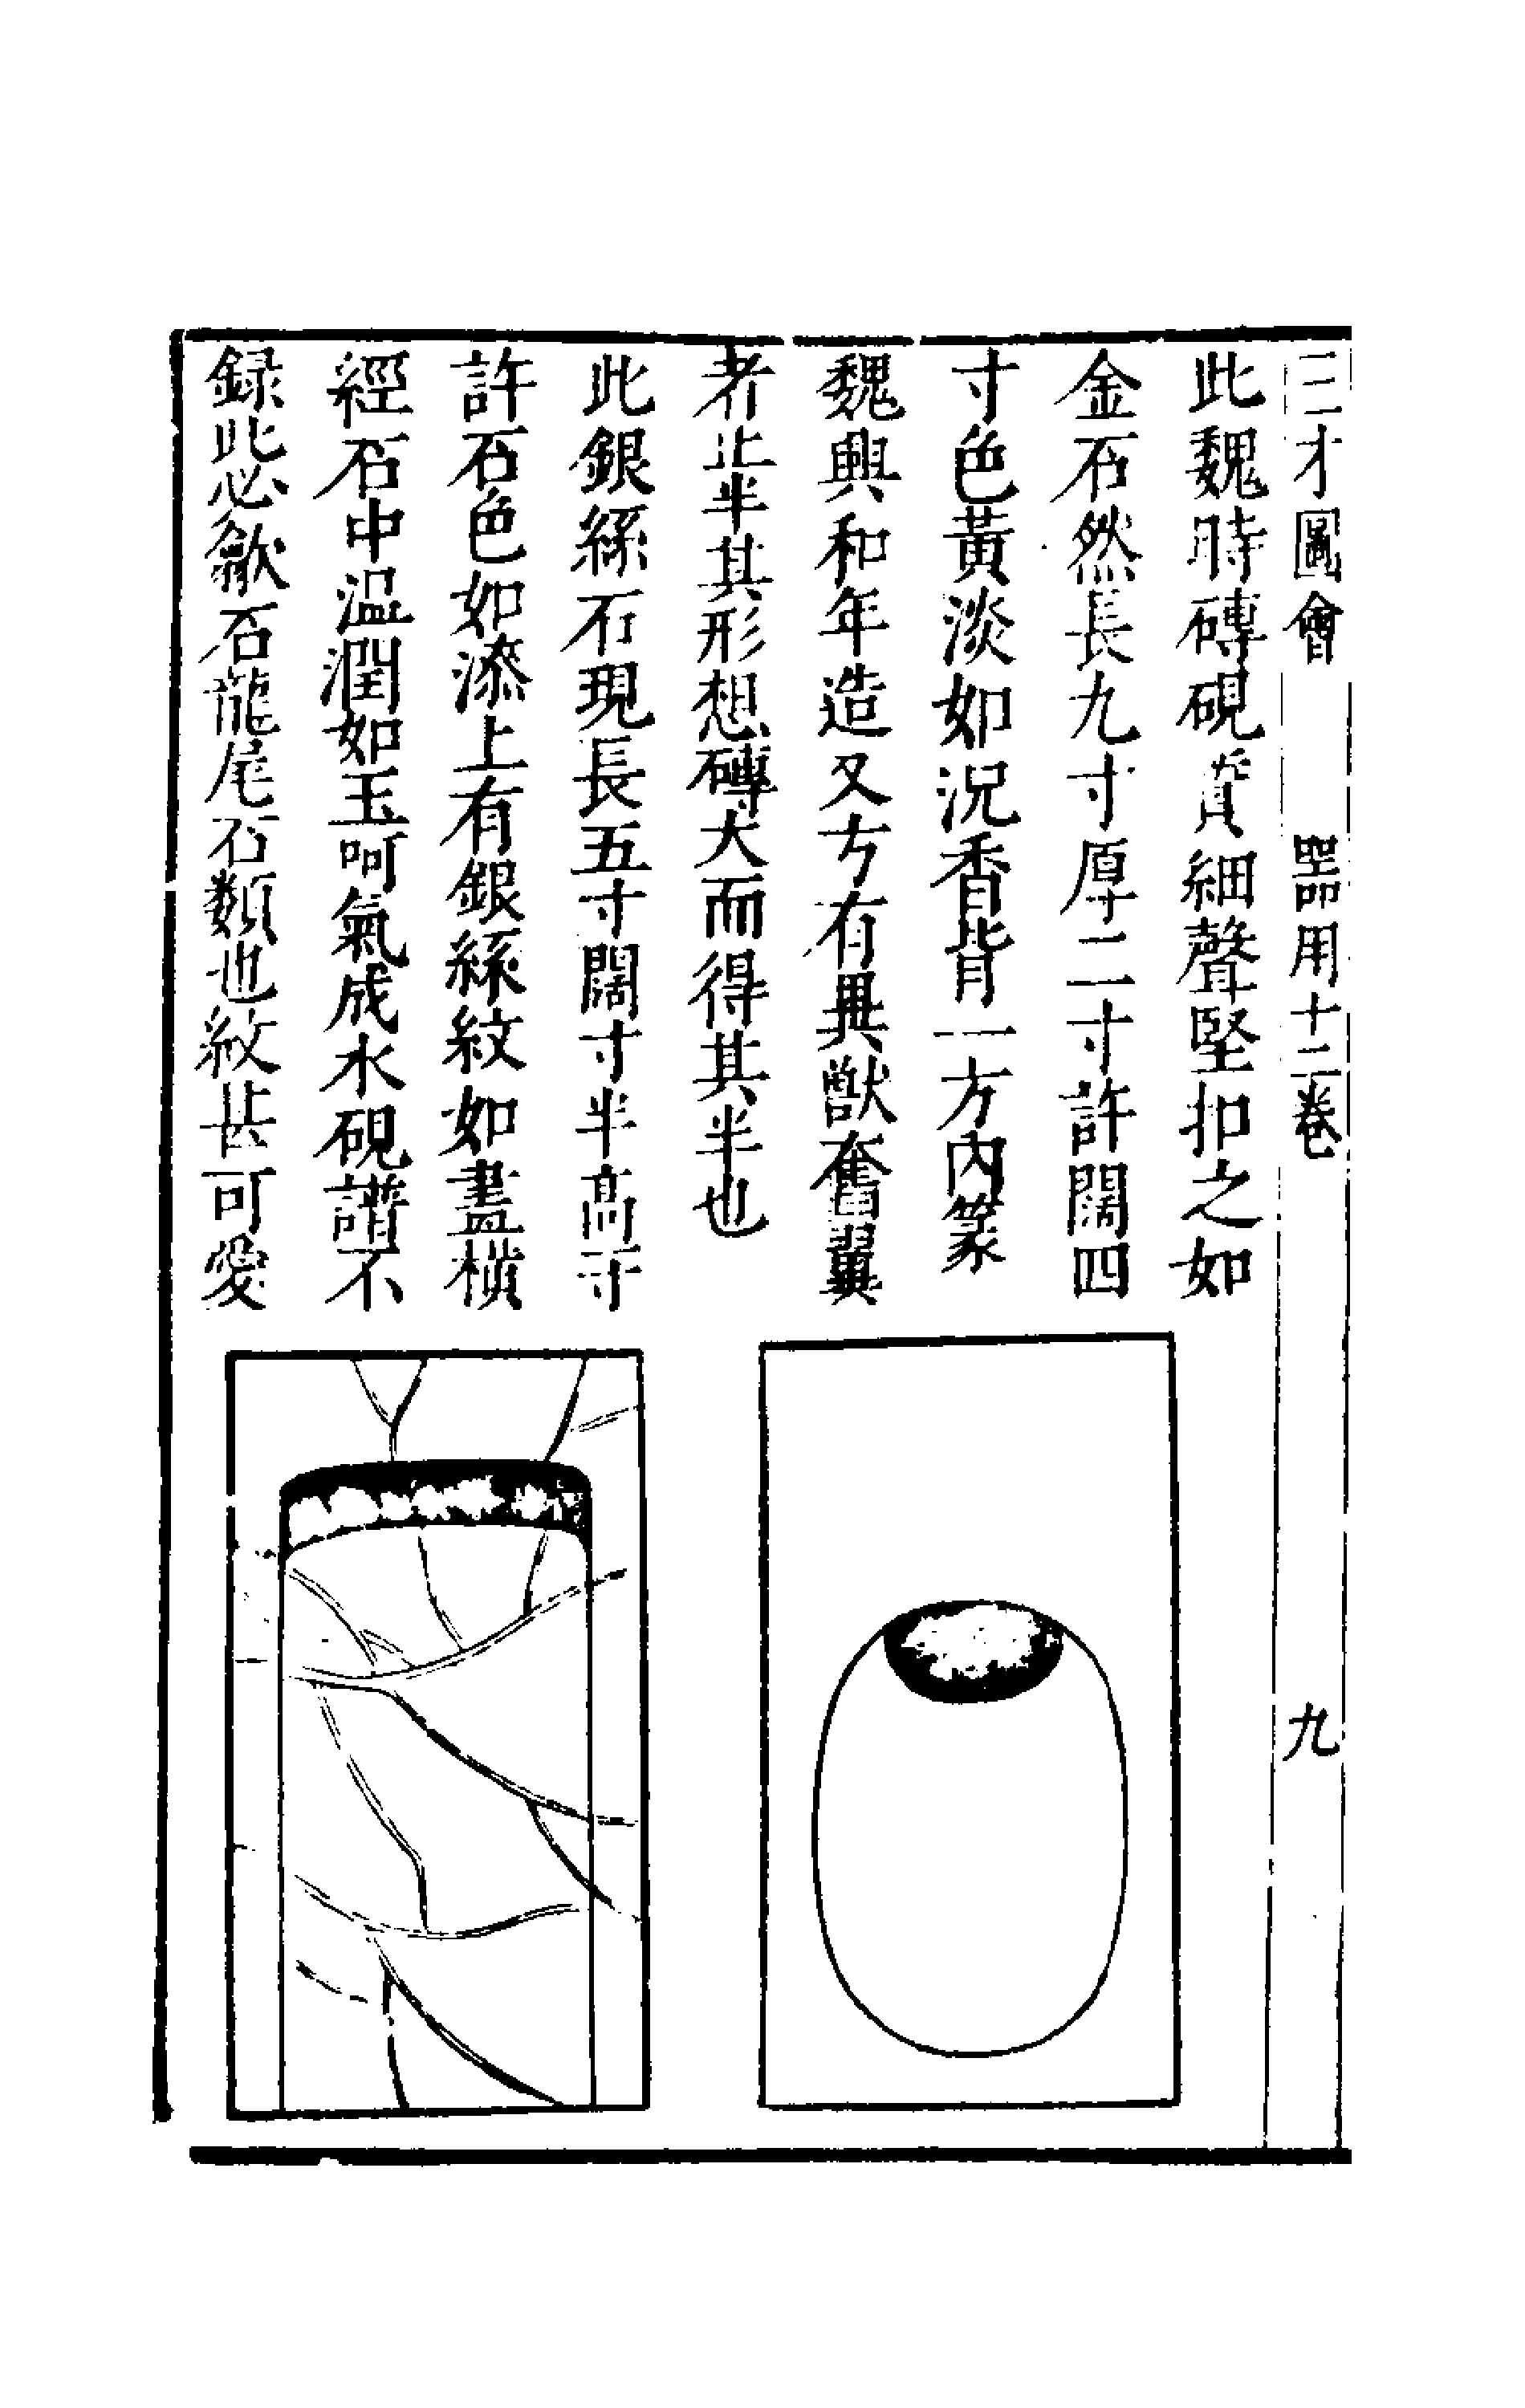 三才圖會　器用十二卷　九
此魏時磚硯質細聲堅扣之如
金石然長九寸厚二寸許闊四
寸色黃淡如況香背一方內篆
魏興和年造又方有異獸奮翼
者止半其形想磚大而得其半也
此銀絲石現長五寸闊寸半高寸
許石色如漆上有銀絲紋如畫橫
經石中溫潤如玉呵氣成水硯譜不
録此必歙石龍尾石類也紋甚可愛